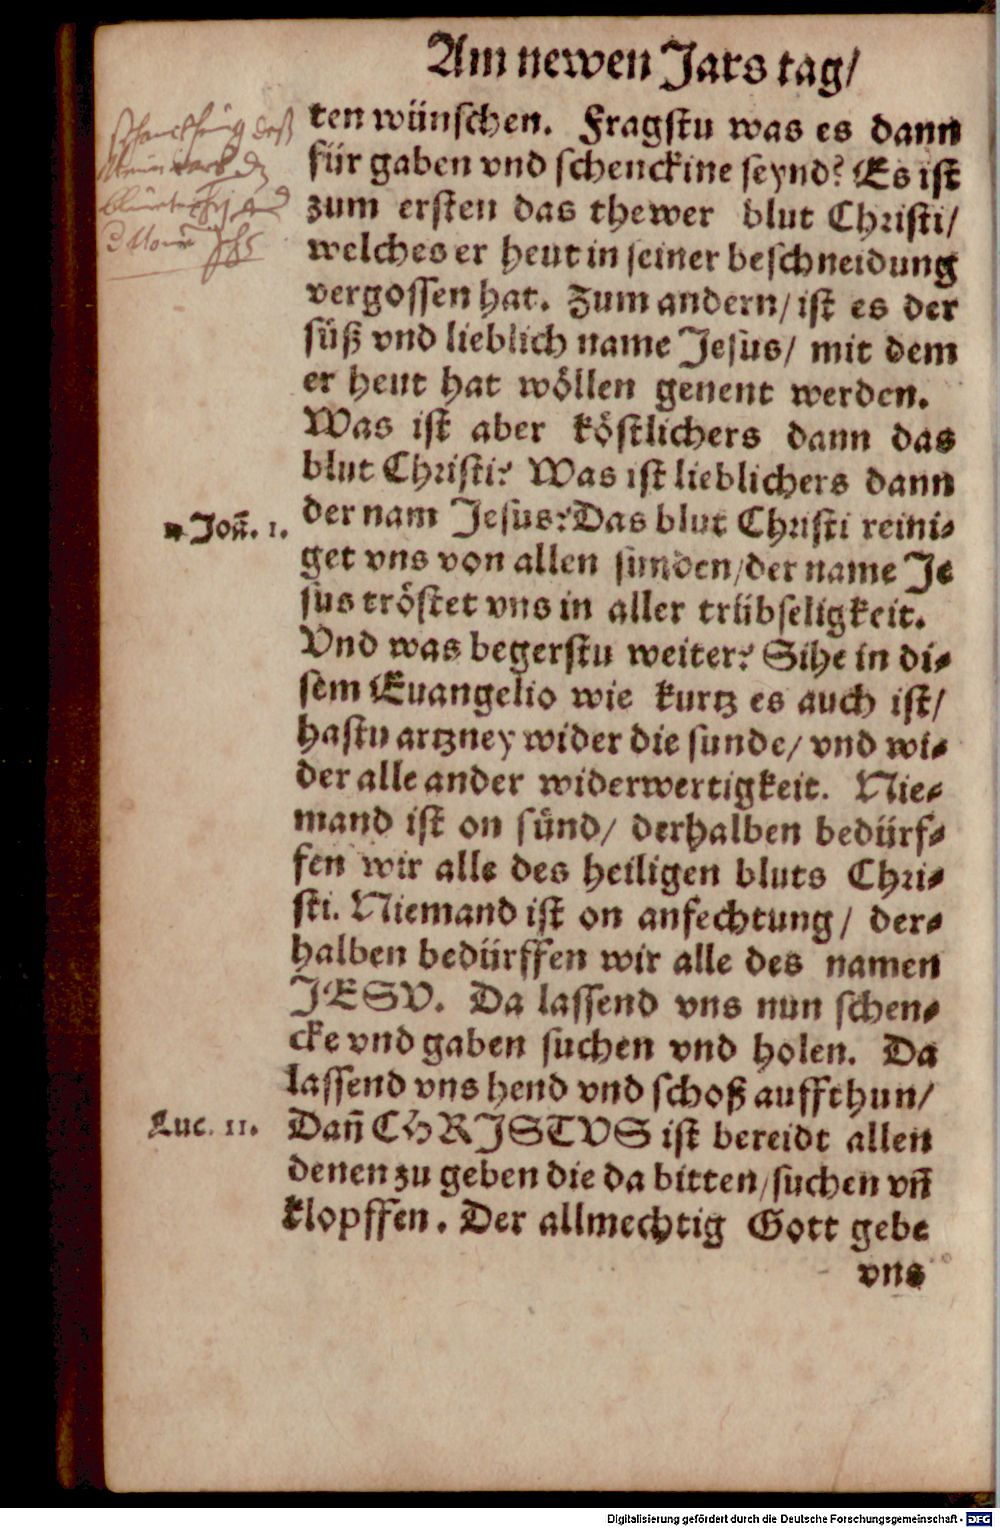 Am newen Jars tag/
ten wünschen. Fragstu was es dann
für gaben vnd schenckine seynd? Es ist
zum ersten das thewer blut Christi/
welches er heut in seiner beschneidung
vergossen hat. Zum andern/ ist es der
süß vnd lieblich name Jesus/ mit dem
er heut hat wöllen genent werden.
Was ist aber köstlichers dann das
blut Christi? Was ist lieblichers dann
1. Joñ. 1.
der nam Jesus? Das blut Christi reini-
get vns von allen sunden/ der name Je
sus tröstet vns in aller trübseligkeit.
Vnd was begerstu weiter? Sihe in di-
sem Euangelio wie kurtz es auch ist/
hastu artzney wider die sunde/ vnd wi-
der alle ander widerwertigkeit. Nie-
mand ist on sünd/ derhalben bedürf-
fen wir alle des heiligen bluts Chri-
sti. Niemand ist on anfechtung/ der-
halben bedürffen wir alle des namen
JESV. Da lassend vns nun schen-
cke vnd gaben suchen vnd holen. Da
lassend vns hend vnd schoß auffthun/
Luc. 11.
Dañ CHRISTVS ist bereidt allen
denen zu geben die da bitten/ suchen vñ
klopffen. Der allmechtig Gott gebe
vns
Digitalisierung gefördert durch die Deutsche Forschungsgemeinschaft - DFG